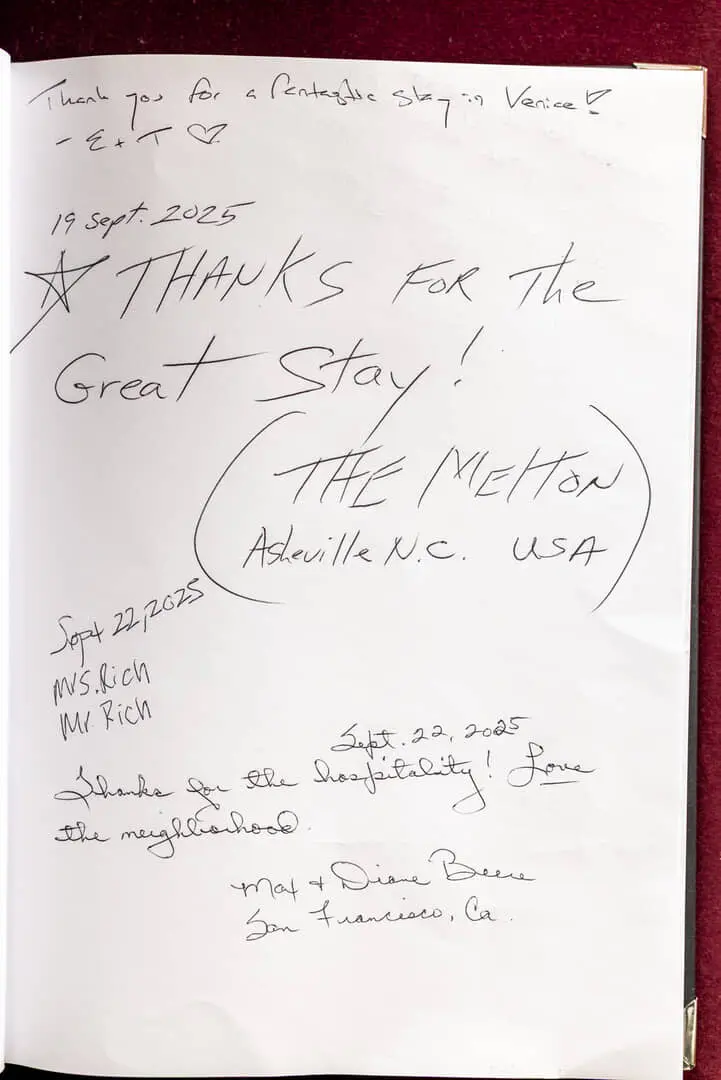 Thank you for a fantastic stay in Venice!
- E + T ♡
19 Sept. 2025
☆ THANKS FOR The
Great Stay!
(THE MELTON
Asheville N.C. USA)
Sept 22, 2025
Mrs. Rich
Mr. Rich
Sept. 22, 2025
Thanks for the hospitality! Love
the neighborhood.
Max + Diane
San Francisco, Ca.